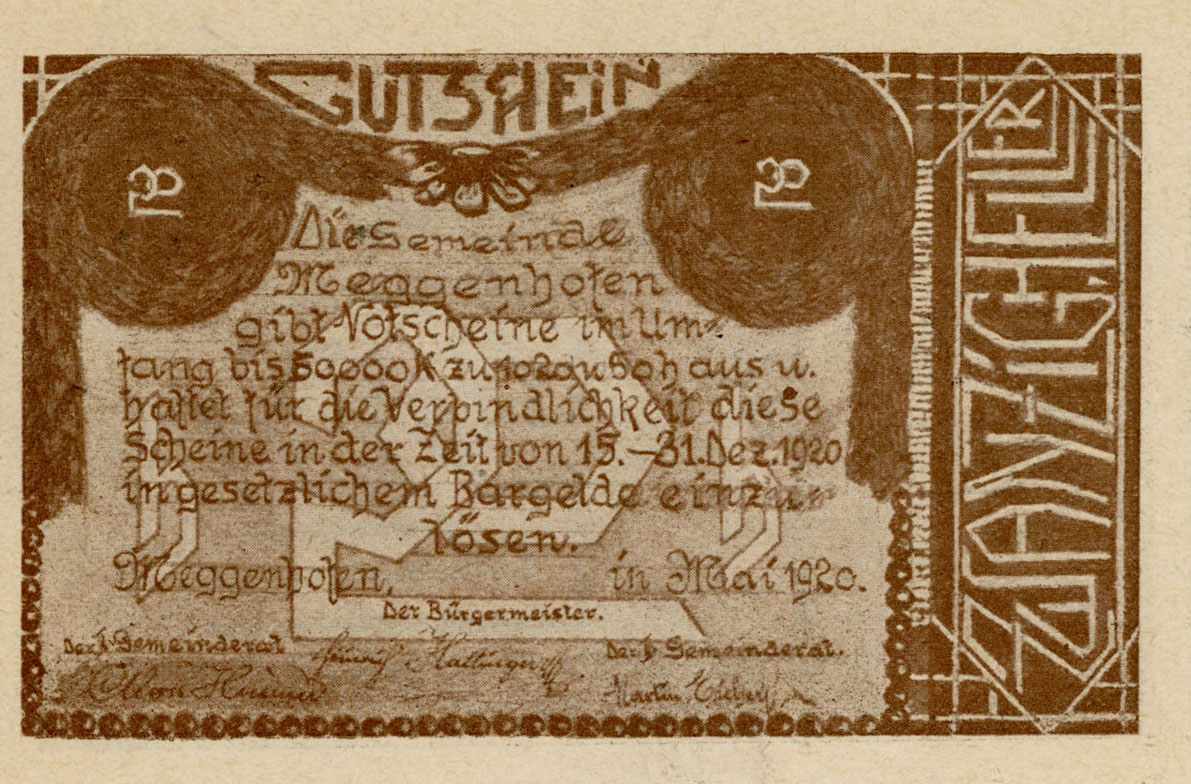 GUTSCHEIN
Die Gemeinde
Meggenhofen
gibt Notscheine im Um=
fang bis 50000K zu 10 20 u 50 h aus u.
haftet für die Verbindlichkeit diese
Scheine in der Zeit von 15.-31.Dez.1920
in gesetzlichem Bargelde einzu
lösen.
Meggenhofen, in Mai 1920.
Der Bürgermeister.
Der I. Gemeinderat
Der Gemeinderat.
Heinrich
Martin
ZWANZIG HELLER